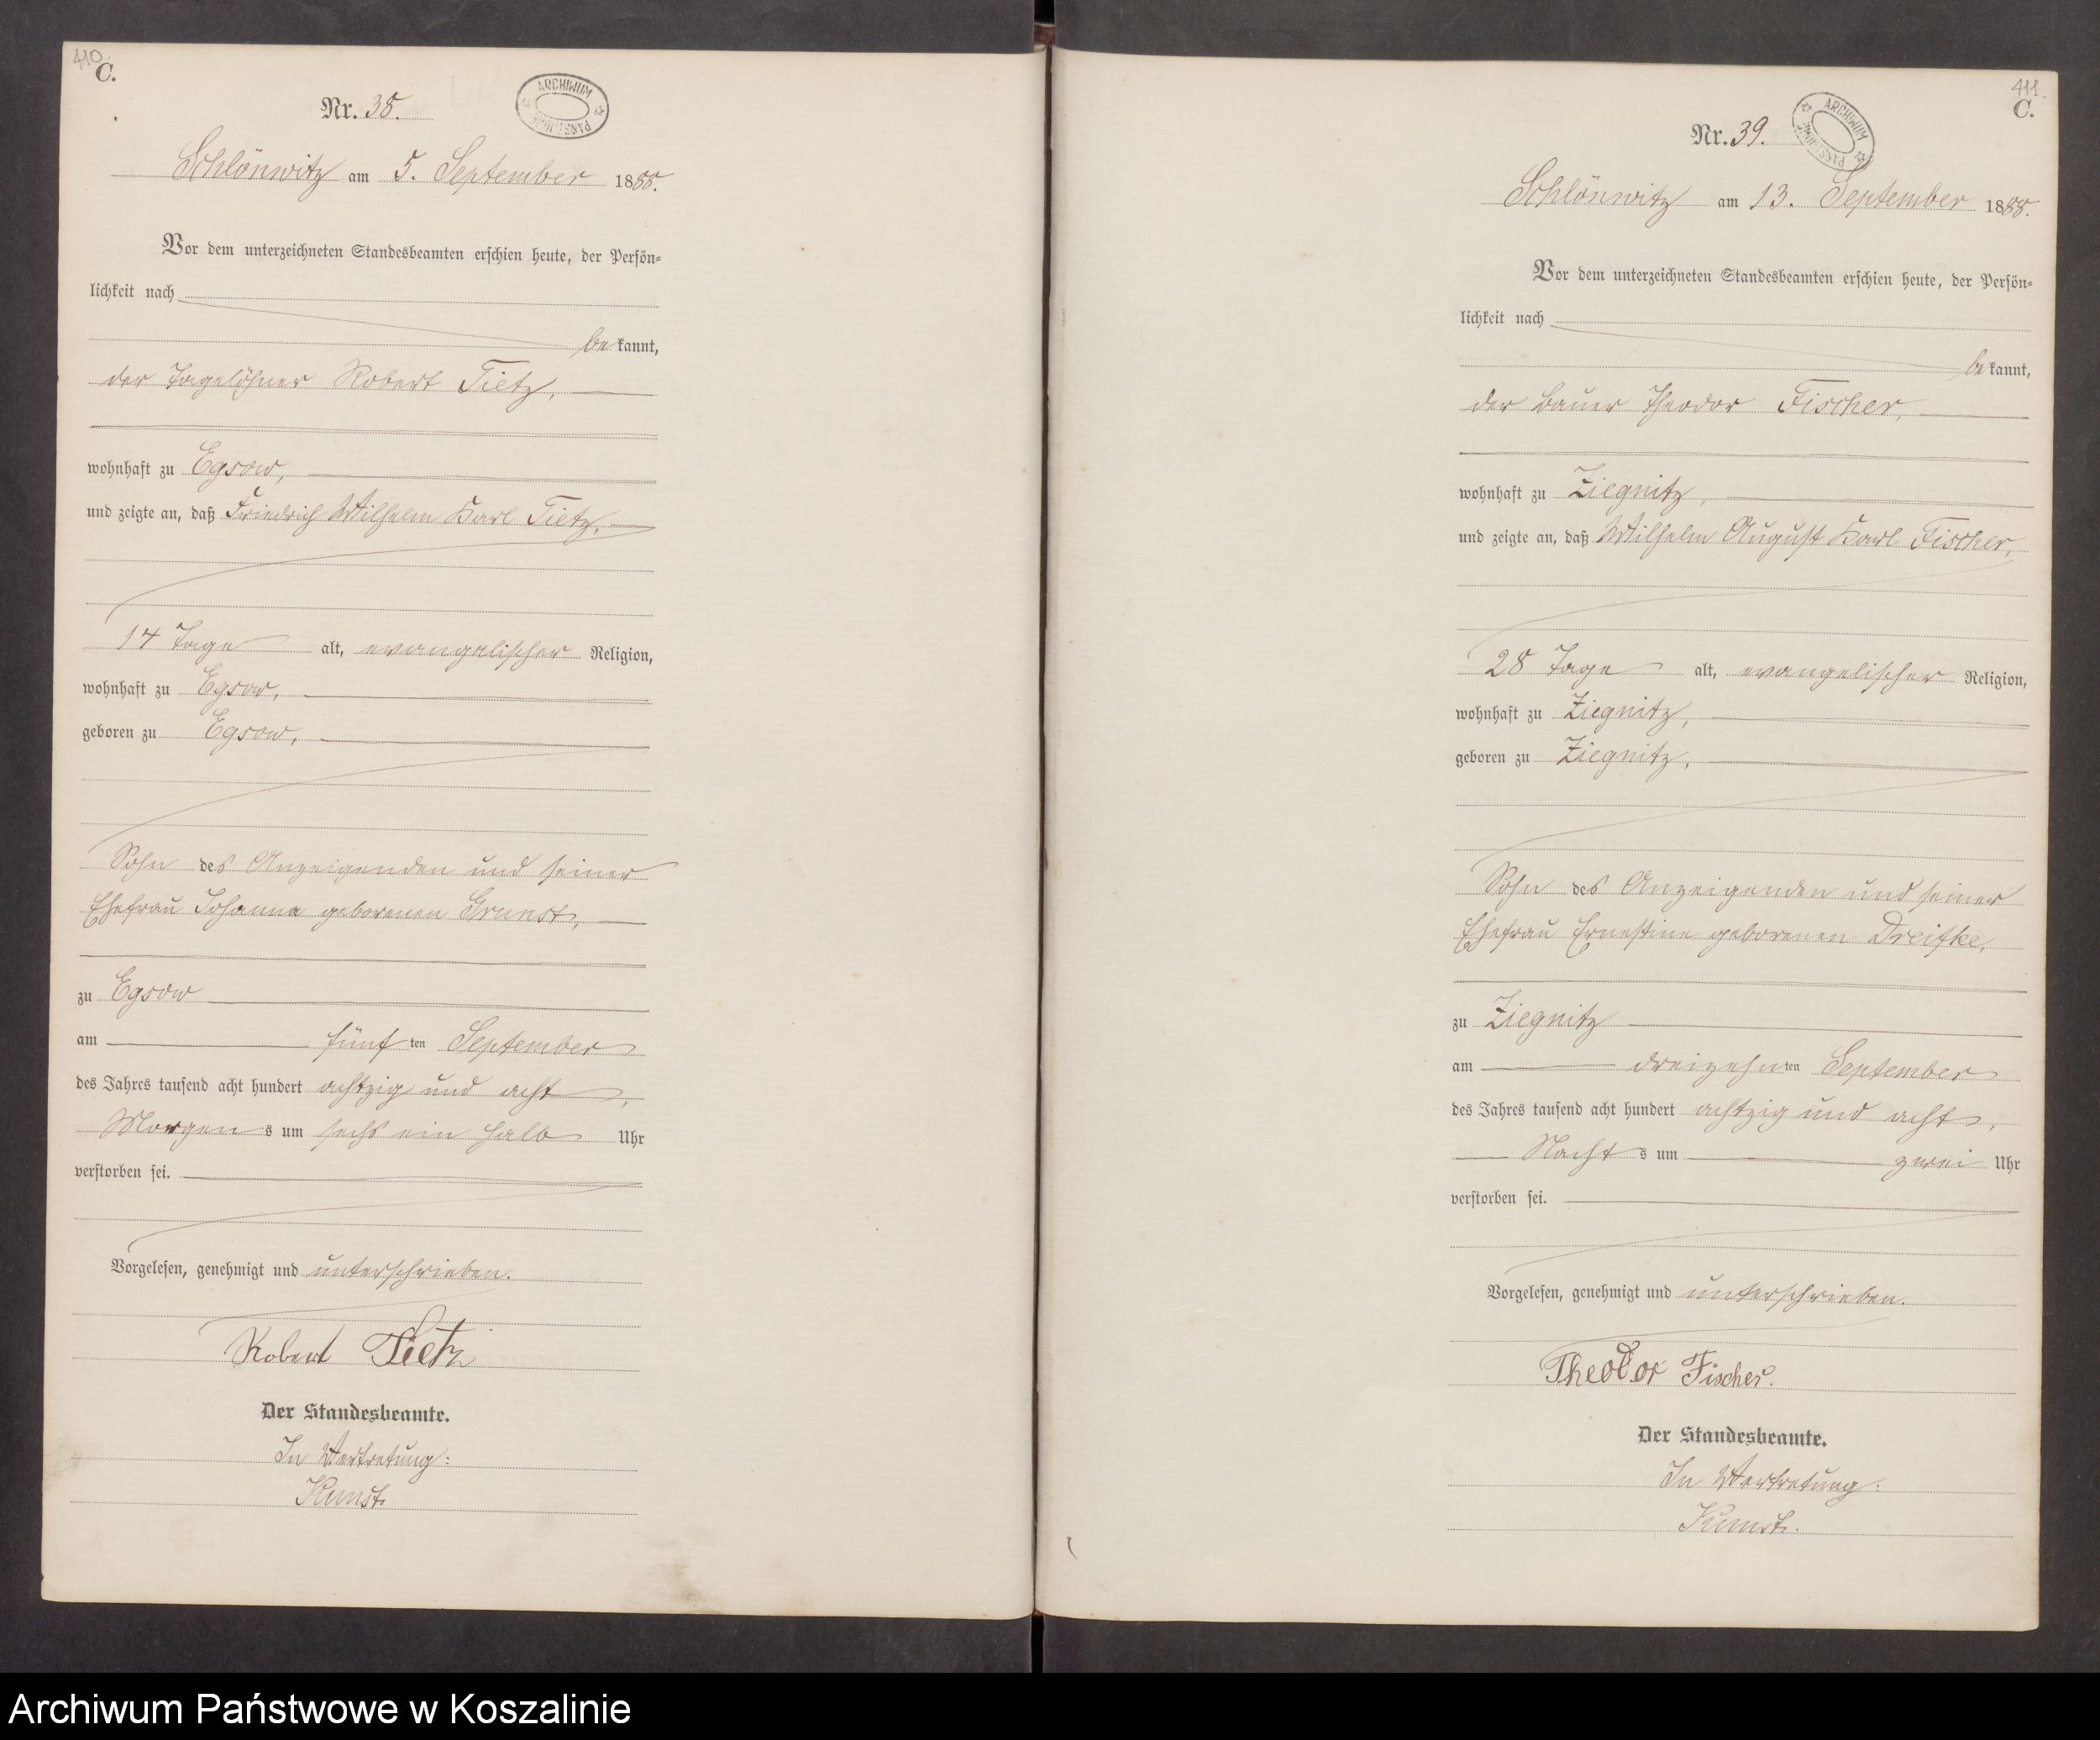 410.
C.
Nr. 38.
ARCHIWUM PAŃSTWOWE
Schlönwitz am 5. September 1888.
Vor dem unterzeichneten Standesbeamten erschien heute, der Persön-
lichkeit nach
be kannt,
der Tagelöhner Robert Tietz,
wohnhaft zu Egsow,
und zeigte an, daß Friedrich Wilhelm Karl Tietz,
14 Tage alt, evangelischer Religion,
wohnhaft zu Egsow,
geboren zu Egsow,
Sohn des Anzeigenden und seiner
Ehefrau Johanna geborenen Grunst,
zu Egsow
am fünf ten September
des Jahres tausend acht hundert achtzig und acht,
Morgen s um sechs ein halb Uhr
verstorben sei.
Vorgelesen, genehmigt und unterschrieben.
Robert Tietz
Der Standesbeamte.
In Vertretung:
Kunst.
411.
C.
Nr. 39.
ARCHIWUM PAŃSTWOWE
Schlönwitz am 13. September 1888.
Vor dem unterzeichneten Standesbeamten erschien heute, der Persön-
lichkeit nach
be kannt,
der Bauer Theodor Fischer,
wohnhaft zu Ziegnitz,
und zeigte an, daß Wilhelm August Karl Fischer,
28 Tage alt, evangelischer Religion,
wohnhaft zu Ziegnitz,
geboren zu Ziegnitz,
Sohn des Anzeigenden und seiner
Ehefrau Ernestine geborenen Dreifke,
zu Ziegnitz
am dreizehn ten September
des Jahres tausend acht hundert achtzig und acht,
Nacht s um zwei Uhr
verstorben sei.
Vorgelesen, genehmigt und unterschrieben.
Theodor Fischer.
Der Standesbeamte.
In Vertretung:
Kunst.
Archiwum Państwowe w Koszalinie